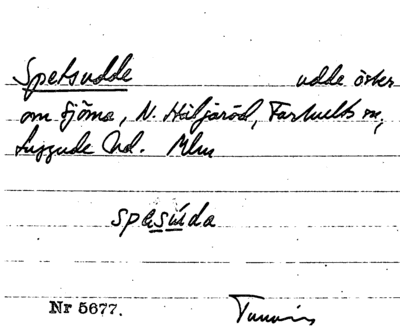 Spetsudde udde öster
om Sjöma, N. Häljaröd, Farhults sn,
Luggude hd. Mlm
spesúda
Nr 5677.